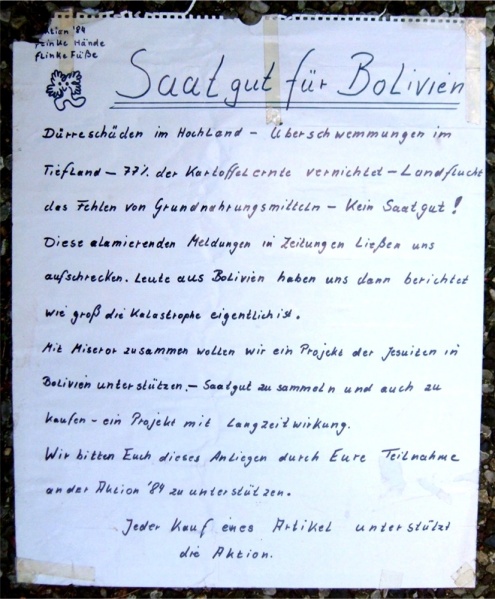 Aktion '84
Flinke Hände
flinke Füße
Saatgut für Bolivien
Dürreschäden im Hochland – Überschwemmungen im
Tiefland – 77% der Kartoffelernte vernichtet – Landflucht
das Fehlen von Grundnahrungsmitteln – Kein Saatgut!
Diese alamierenden Meldungen in Zeitungen ließen uns
aufschrecken. Leute aus Bolivien haben uns dann berichtet
wie groß die Katastrophe eigentlich ist.
Mit Miseror zusammen wollen wir ein Projekt der Jesuiten in
Bolivien unterstützen. – Saatgut zu sammeln und auch zu
kaufen – ein Projekt mit Langzeitwirkung.
Wir bitten Euch dieses Anliegen durch Eure Teilnahme
an der Aktion '84 zu unterstützen.
Jeder Kauf eines Artikel unterstützt
die Aktion.